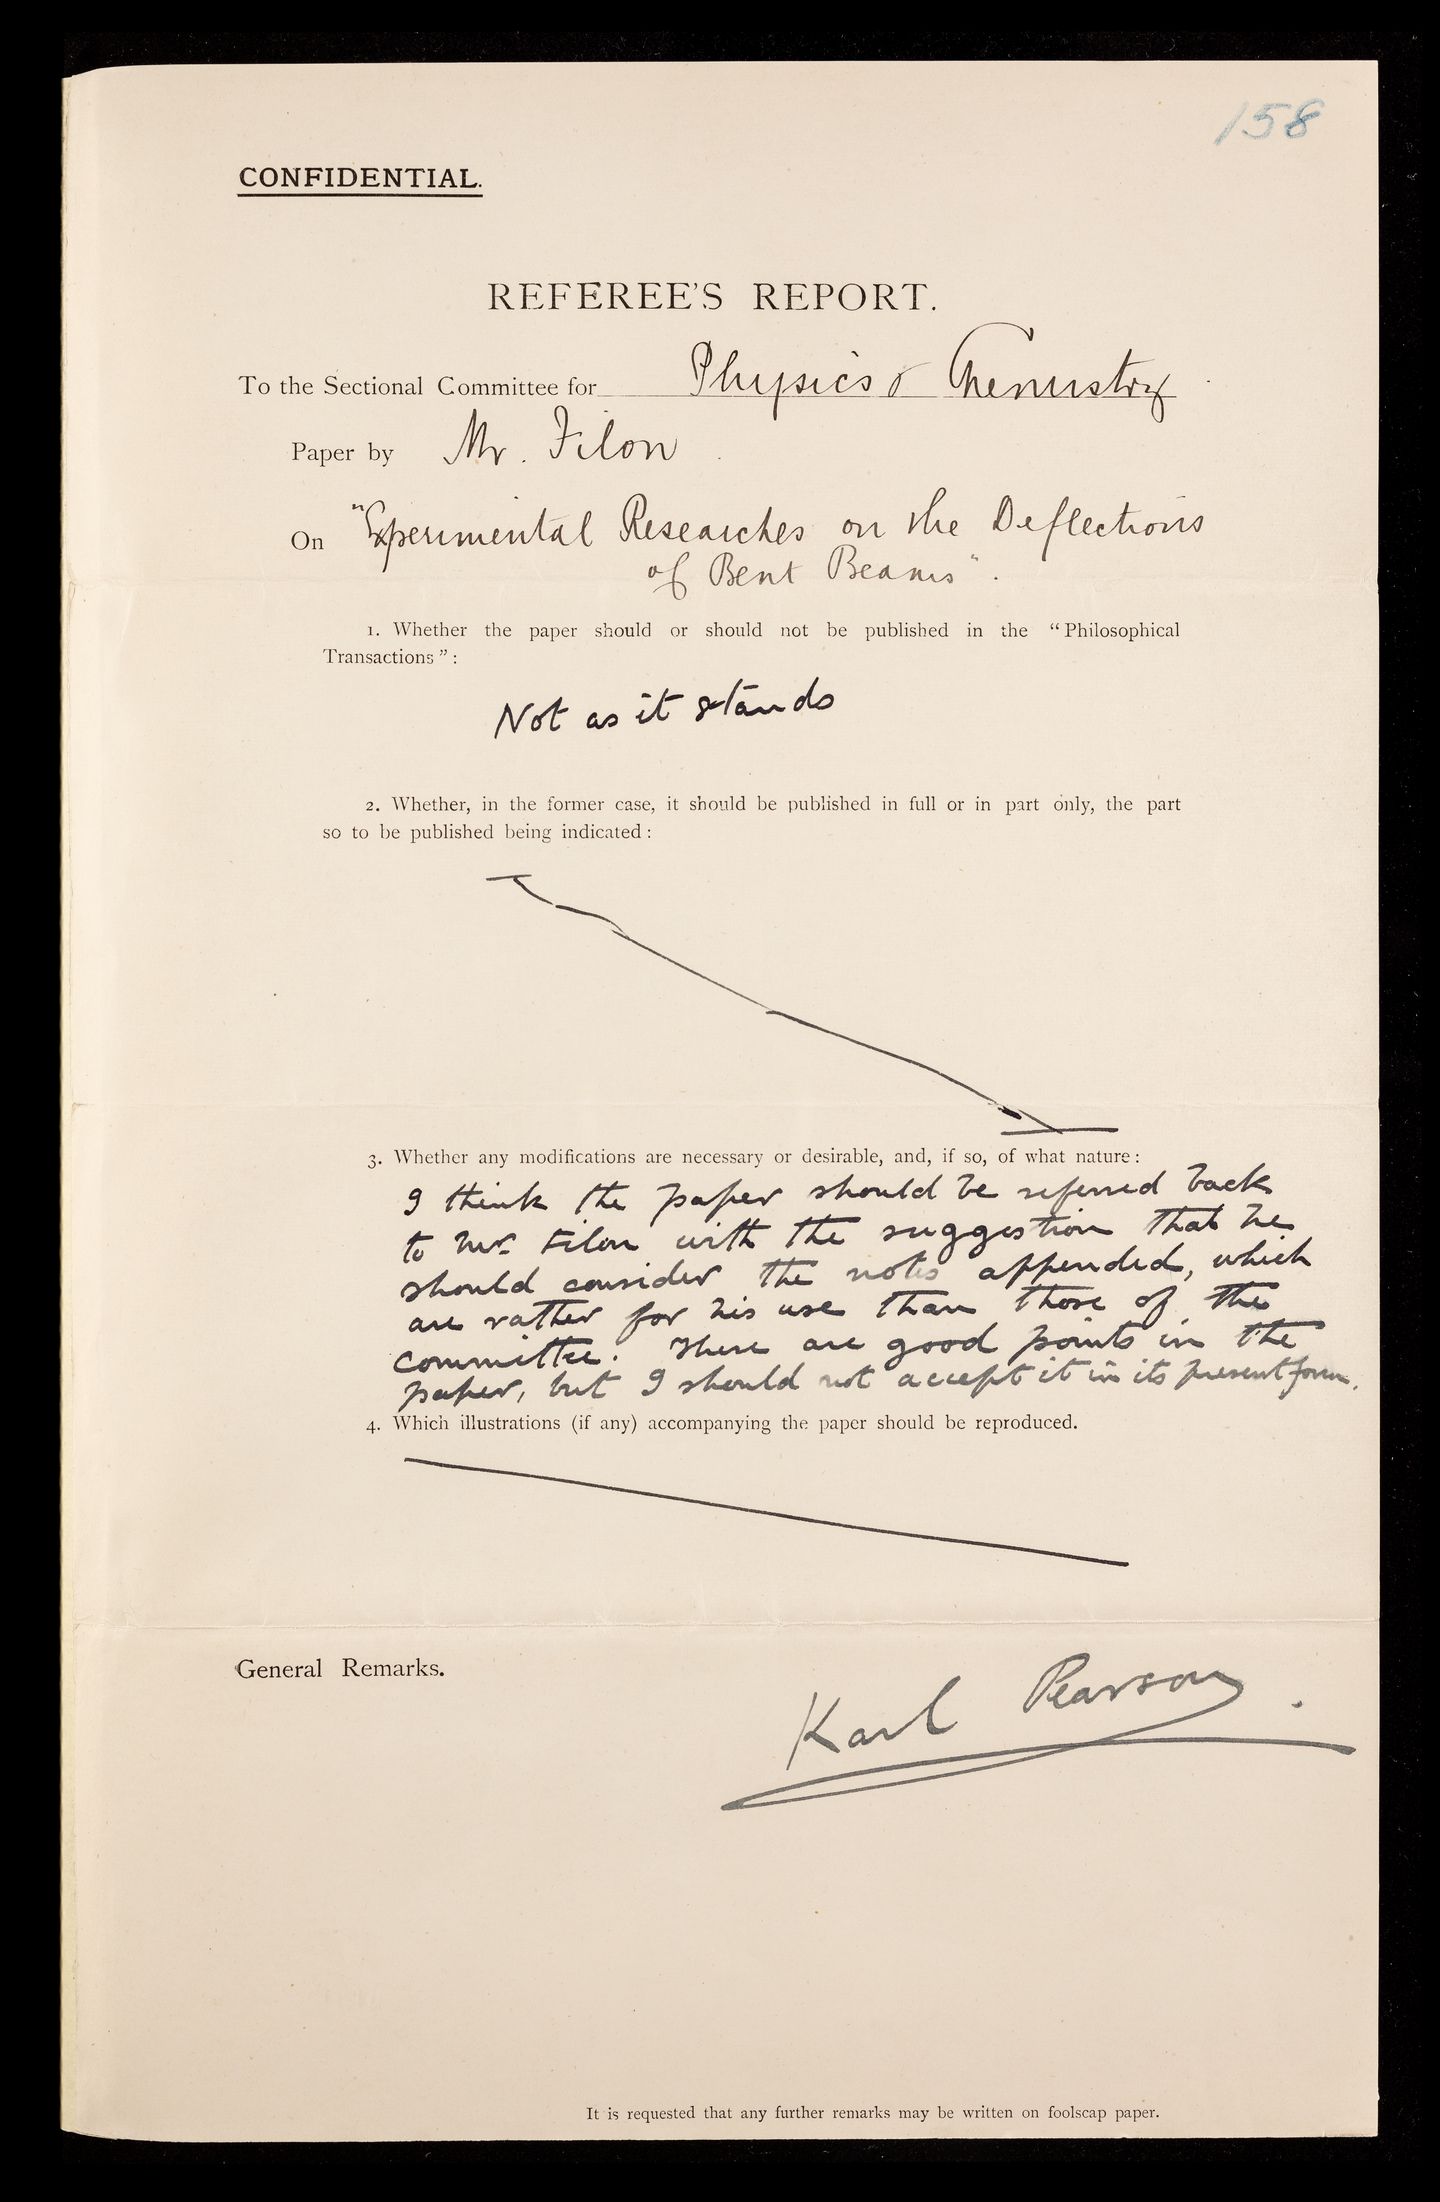 158
CONFIDENTIAL.
REFEREE'S REPORT.
To the Sectional Committee for Physics & Chemistry
Paper by Mr. Filon
On "Experimental Researches on the Deflections
of Bent Beams".
1. Whether the paper should or should not be published in the "Philosophical
Transactions":
Not as it stands
2. Whether, in the former case, it should be published in full or in part only, the part
so to be published being indicated:
3. Whether any modifications are necessary or desirable, and, if so, of what nature:
I think the paper should be referred back
to Mr. Filon with the suggestion that he
should consider the notes appended, which
are rather for his use than those of the
committee. There are good points in the
paper, but I should not accept it in its present form.
4. Which illustrations (if any) accompanying the paper should be reproduced.
General Remarks.
Karl Pearson.
It is requested that any further remarks may be written on foolscap paper.